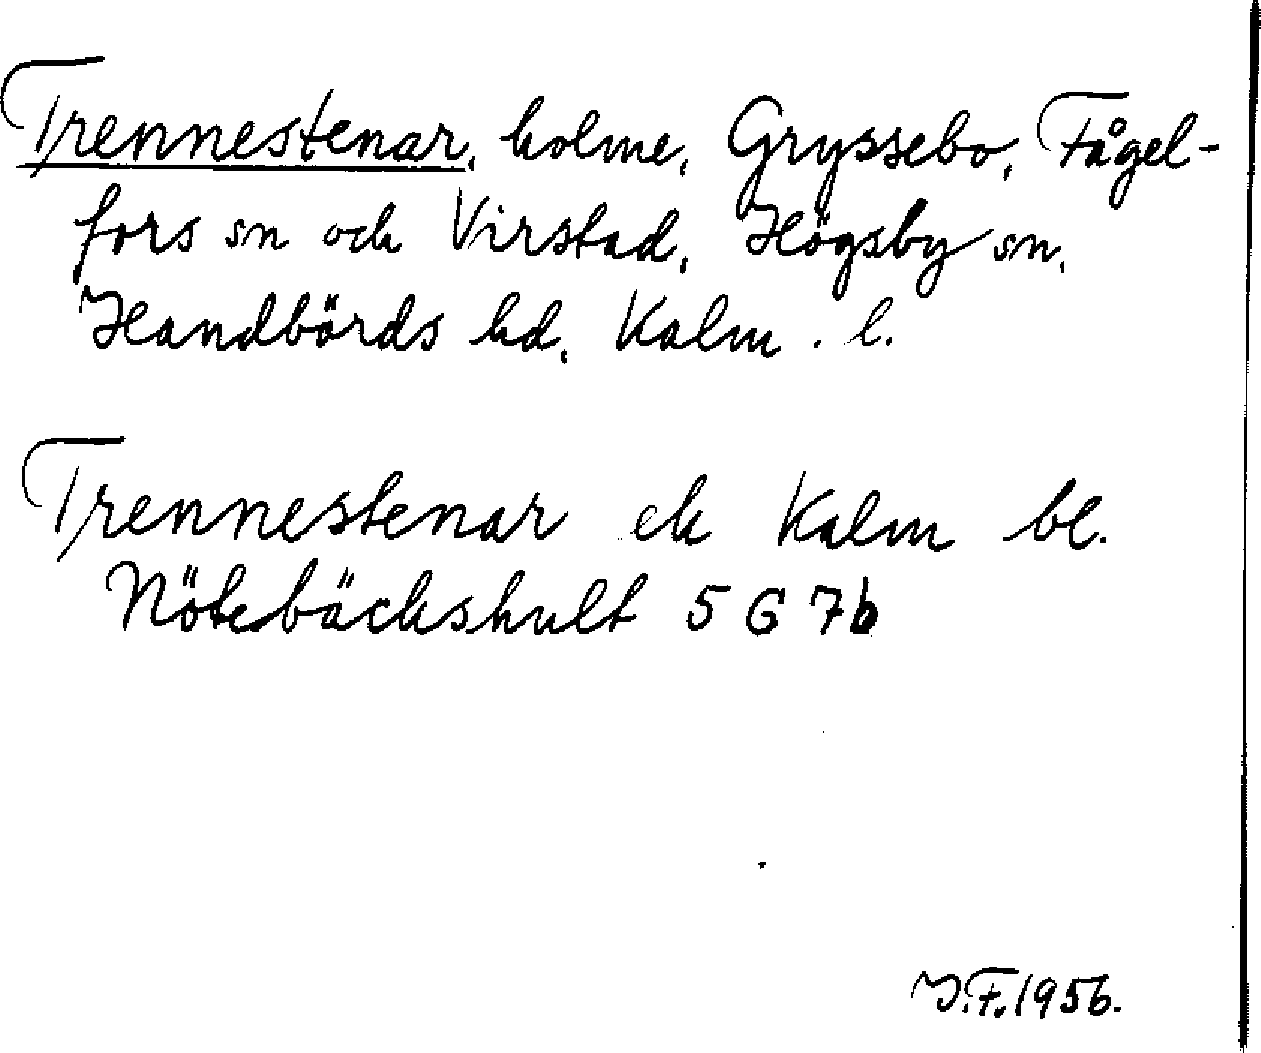 Trennestenar, holme, Gryssebo, Fågel-
fors sn och Virstad, Högsby sn,
Handbörds hd, Kalm. l.
Trennestenar ek Kalm bl.
Nötebäckshult 5 G 7b
I.F. 1956.